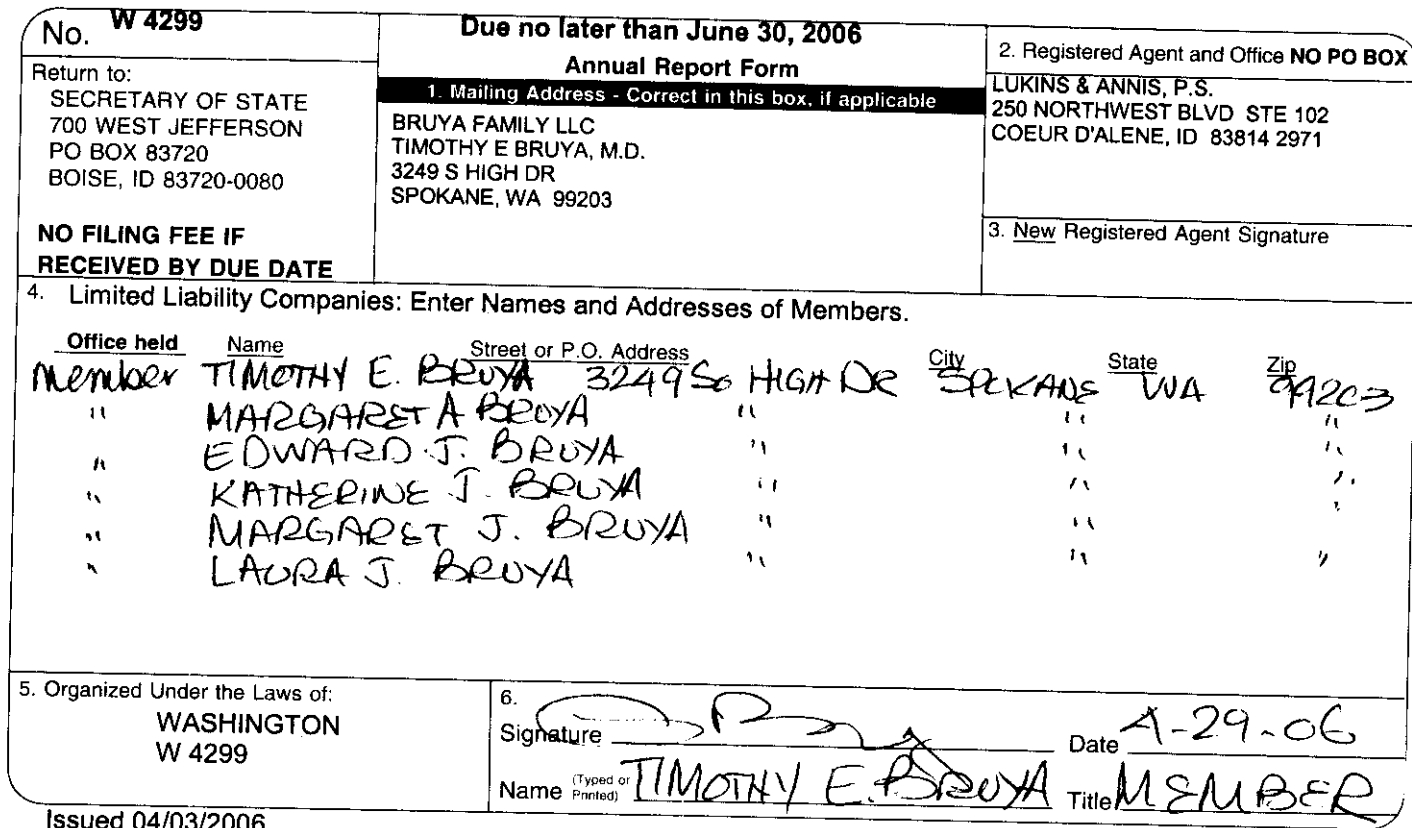 No. W 4299
Return to:
SECRETARY OF STATE
700 WEST JEFFERSON
PO BOX 83720
BOISE, ID 83720-0080
NO FILING FEE IF
RECEIVED BY DUE DATE
Due no later than June 30, 2006
Annual Report Form
1. Mailing Address - Correct in this box, if applicable
BRUYA FAMILY LLC
TIMOTHY E BRUYA, M.D.
3249 S HIGH DR
SPOKANE, WA 99203
2. Registered Agent and Office NO PO BOX
LUKINS & ANNIS, P.S.
250 NORTHWEST BLVD STE 102
COEUR D'ALENE, ID 83814 2971
3. New Registered Agent Signature
4. Limited Liability Companies: Enter Names and Addresses of Members.
Office held Name Street or P.O. Address City State Zip
Member TIMOTHY E. BRUYA 3249 So HIGH DR SPOKANE WA 99203
" MARGARET A BRUYA " " "
" EDWARD J. BRUYA " " "
" KATHERINE J. BRUYA " " "
" MARGARET J. BRUYA " " "
" LAURA J. BRUYA " " "
5. Organized Under the Laws of:
WASHINGTON
W 4299
6.
Signature Date 4-29-06
Name (Typed or Printed) TIMOTHY E. BRUYA Title MEMBER
Issued 04/03/2006